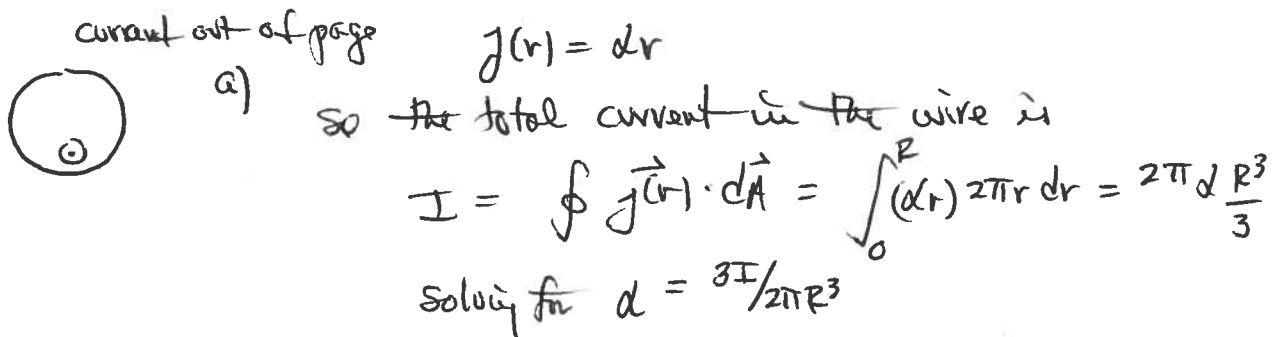 current out of page
j(r) = αr
a)
so the total current in the wire is
I = ∮ j⃗(r) · dA⃗ = ∫₀ᴿ (αr) 2πr dr = 2πα R³/3
solving for α = 3I/2πR³